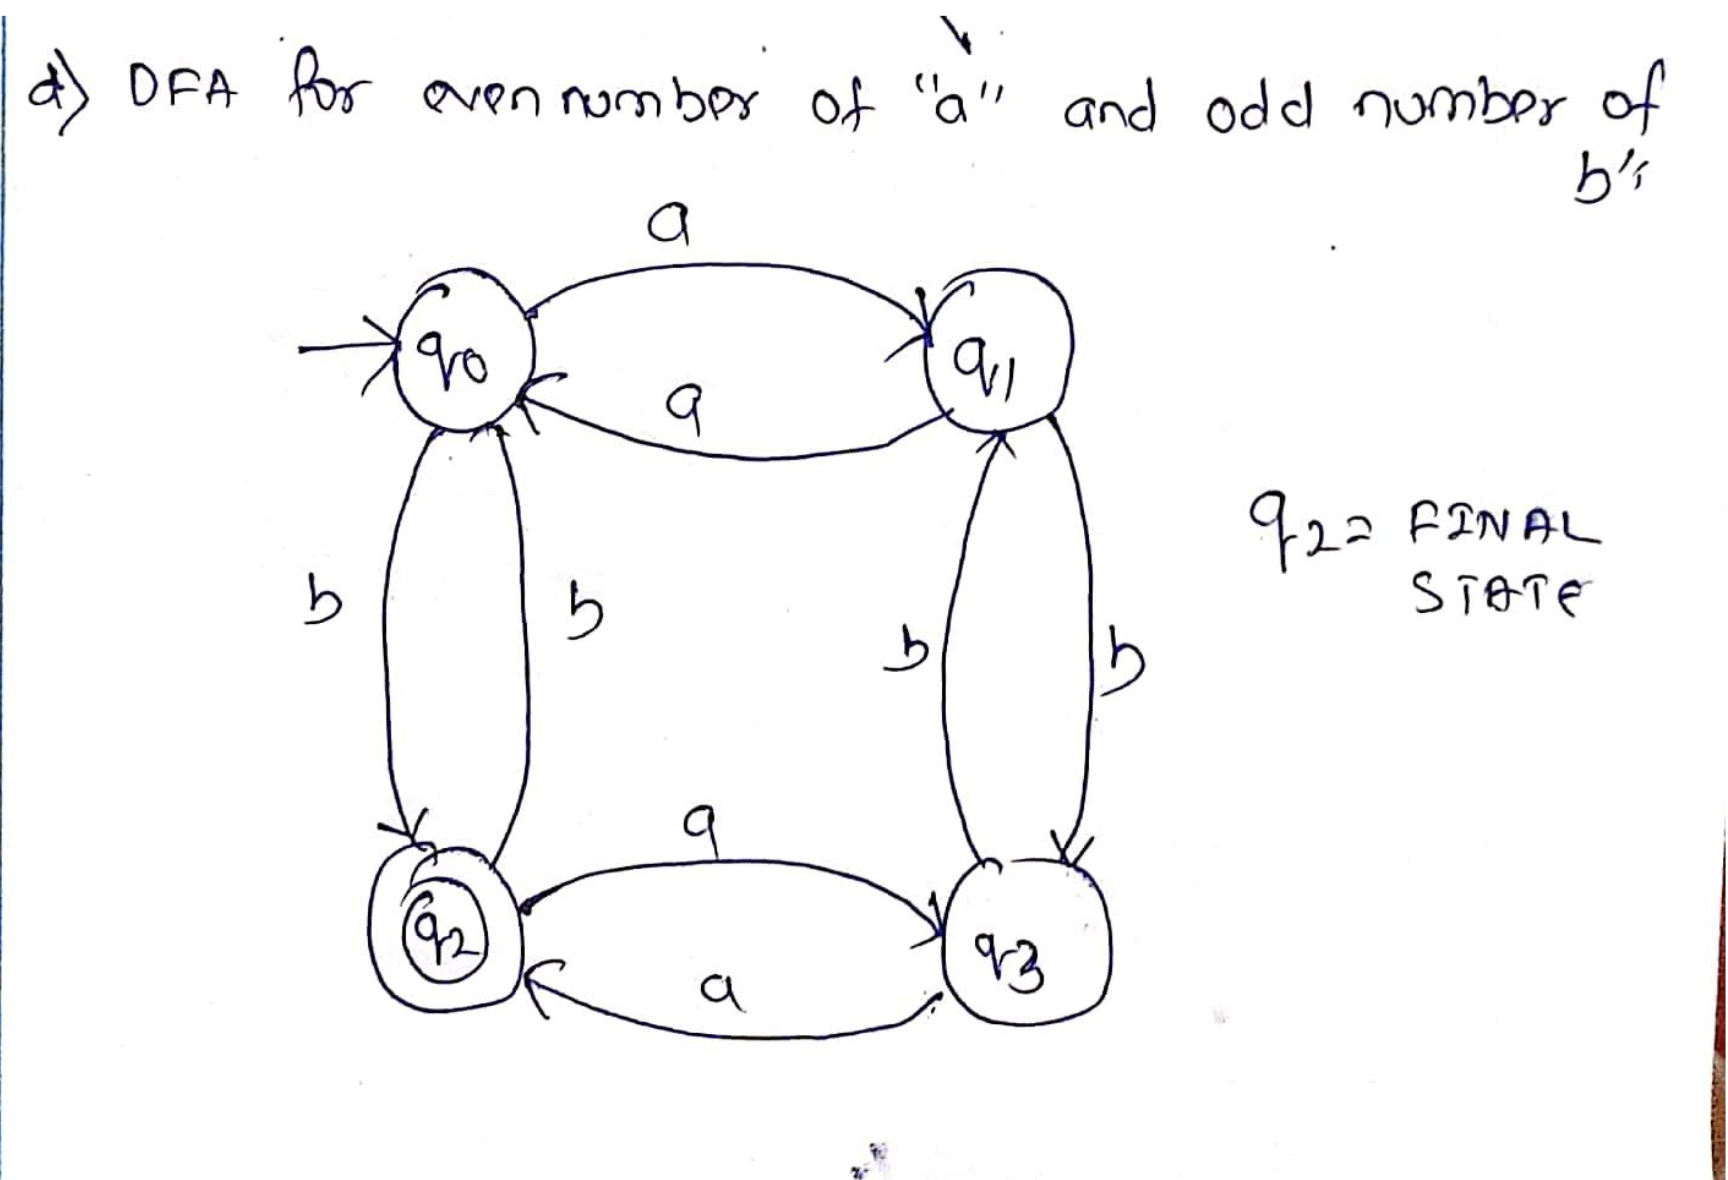 d) DFA for even number of "a" and odd number of
b's
a
q0
q1
a
b
b
b
b
q2 = FINAL
STATE
a
q2
q3
a